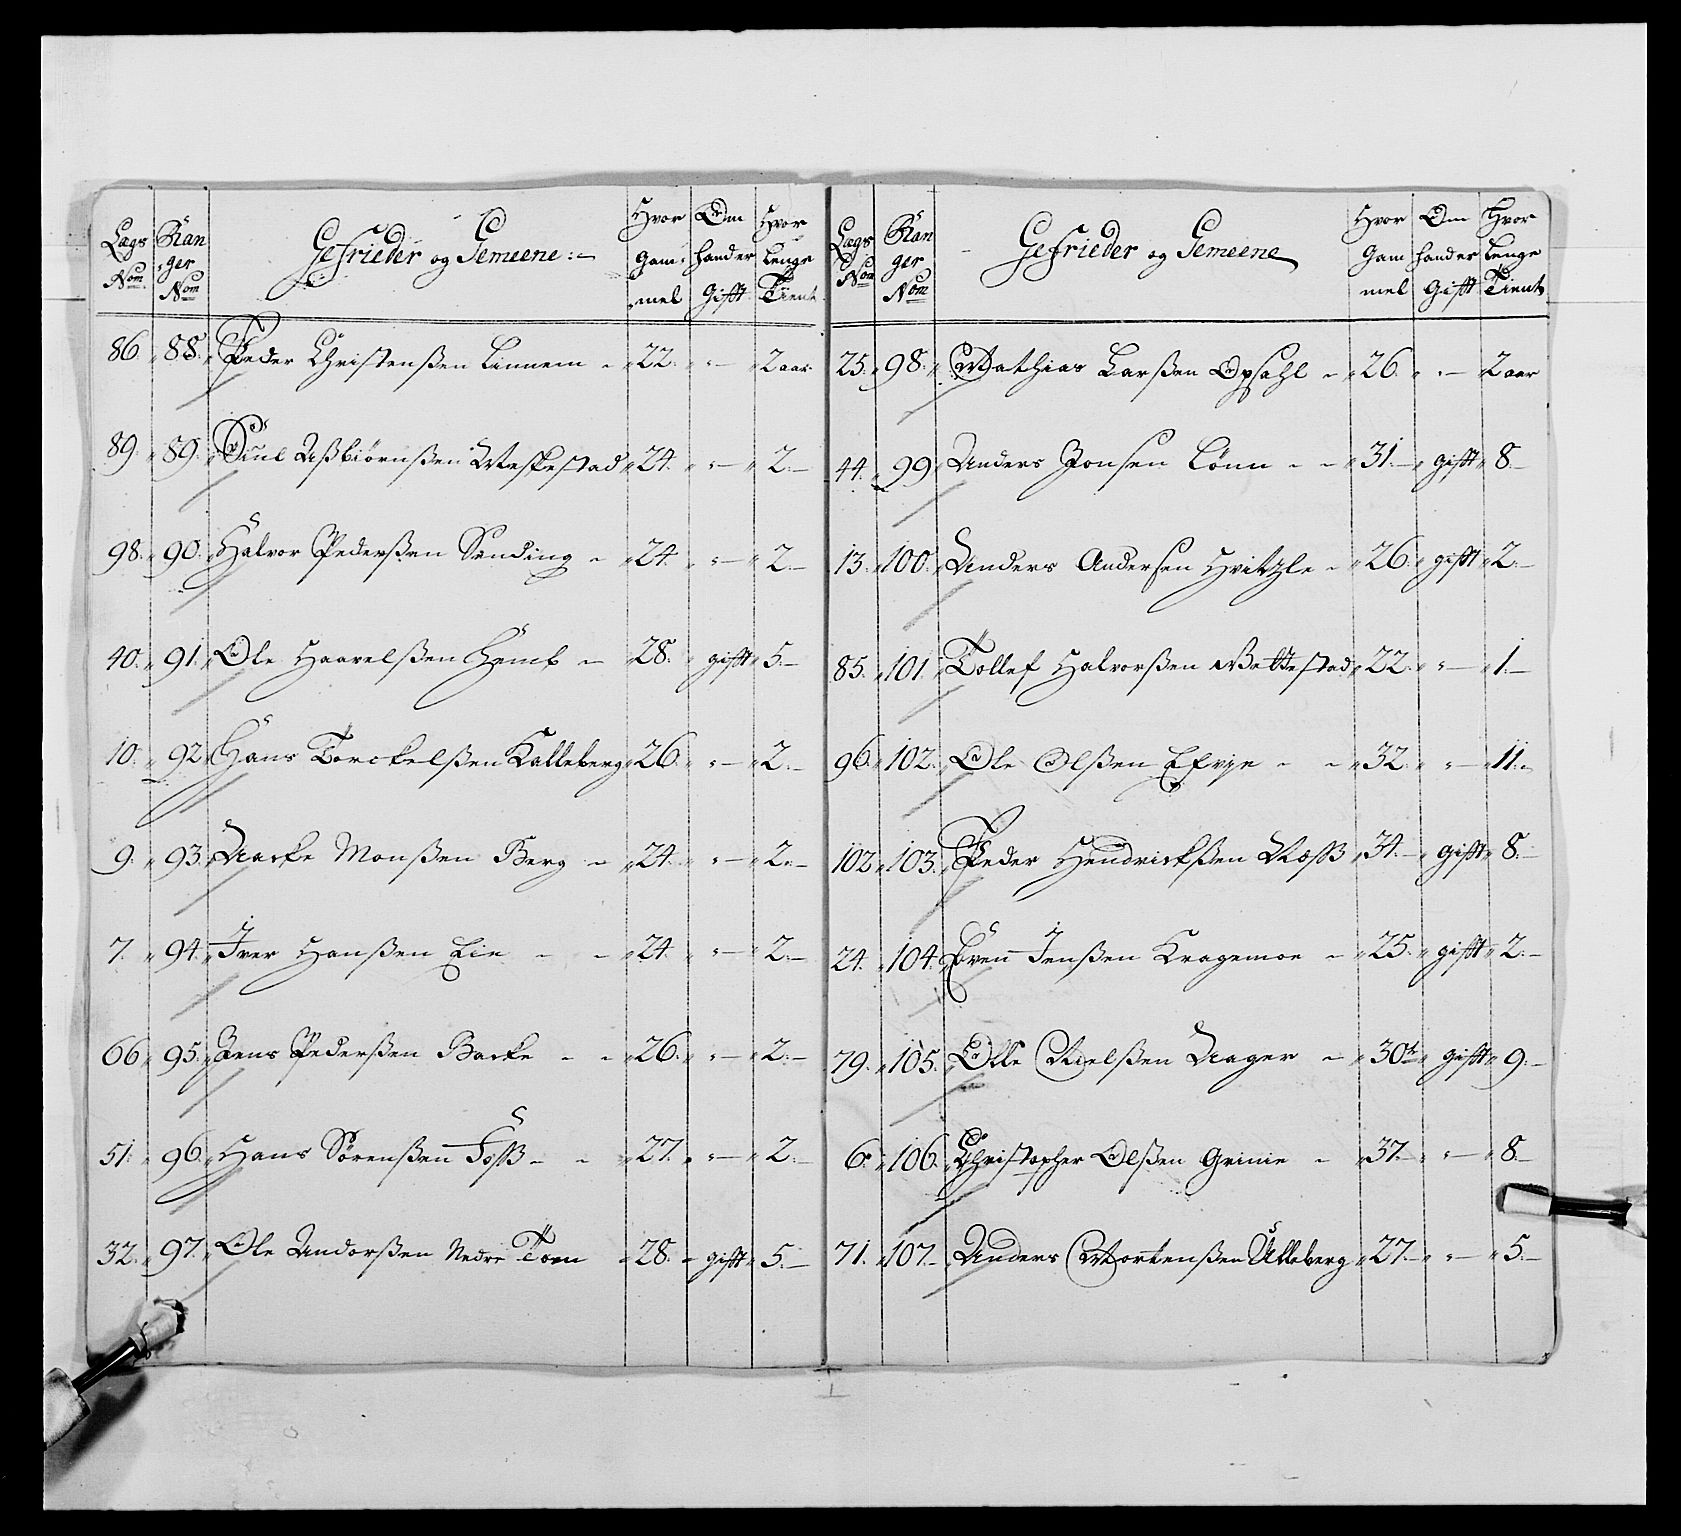 Lægs Nom. Ran ger Nom Gefrieder og Gemeene :- Hvor Gam mel Om hand er Gifft Hvor lenge Tient
86. 88. Peder Christenßen Linnem - 22. - 2 aar
89. 89. Siul Aßbiörnßen Weskestad 24. - 2.
98. 90. Halvor Pederßen Sending - 24. - 2.
40. 91. Ole Haavelßen Hemb - 28. gifft 5.
10. 92. Hans Torckelßen Kalleberg 26. - 2.
9. 93. Aacke Monßen Berg - 24. - 2.
7. 94. Iver Hanßen Eie - 24. - 2.
66. 95. Jens Pederßen Backe - 26. - 2.
51. 96. Hans Sörenßen Foß - 27. - 2.
32. 97. Ole Andorßen Nedre Toen 28. gifft 5.
Lægs Nom Ran ger Nom Gefrieder og Gemeene Hvor Gam mel Om hand er Gifft Hvor lenge Tient
25. 98. Mathias Larßen Opsahl - 26. - 2 aar
44. 99. Anders Jonsen Lönn - 31. gifft 8.
13. 100. Anders Andersen Hvitzle - 26. gifft 2.
85. 101. Tollef Halvorßen Wettestad 22. - 1.
96. 102. Ole Olßen Efvje - 32. - 11.
102. 103. Peder Hendrickßen Næß 34. gifft 8.
24. 104. Sören Jenßen Kragemoe - 25. gifft 2.
79. 105. Olle Nielßen Aager - 30½ gifft 9.
6. 106. Christopher Olßen Grinie - 37. - 8.
71. 107. Anders Mortenßen Ulleberg 27. - 5.